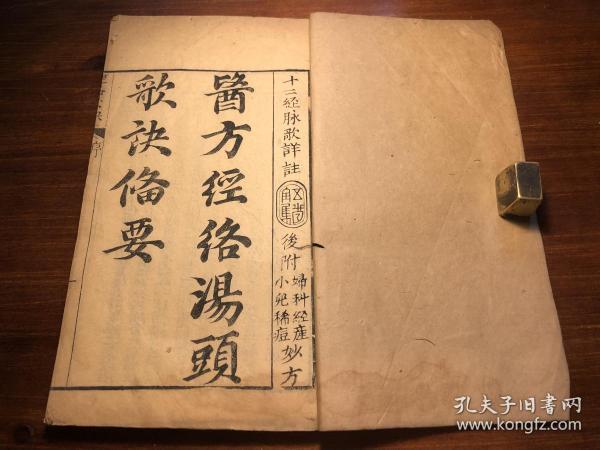 十二經脉歌詳註
後附婦科經產小兒稀痘妙方
醫方經絡湯頭
歌訣備要
序
孔夫子旧书网
www.kongfz.com